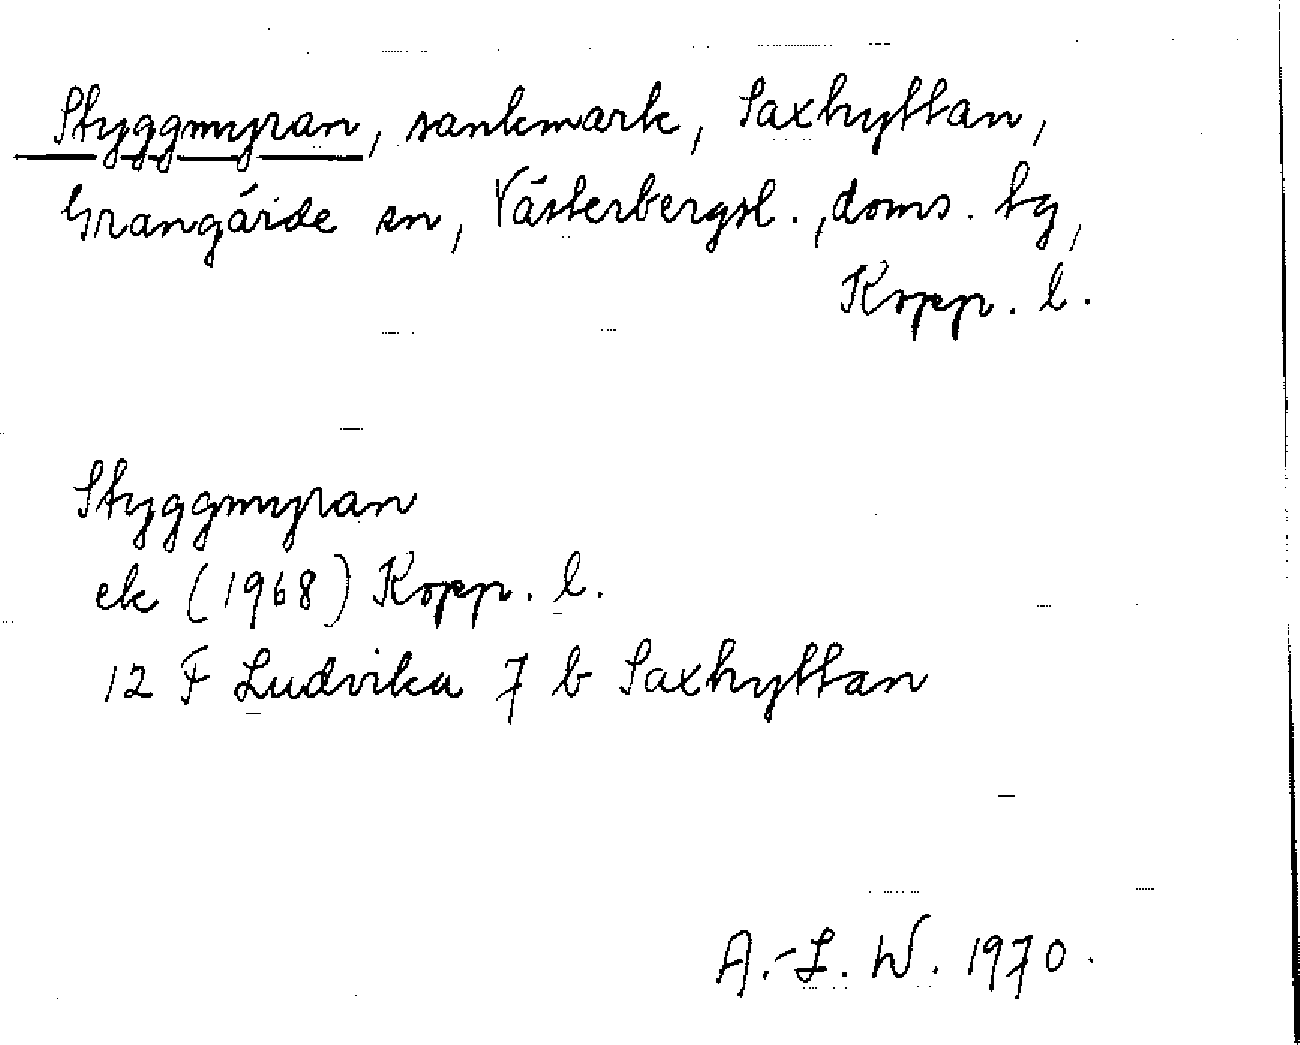 Styggmyran, sankmark, Saxhyttan,
Grangärde sn, Västerbergsl., doms. tg,
Kopp. l.
Styggmyran
ek (1968) Kopp. l.
12 F Ludvika 7 b Saxhyttan
A.-L. W. 1970.